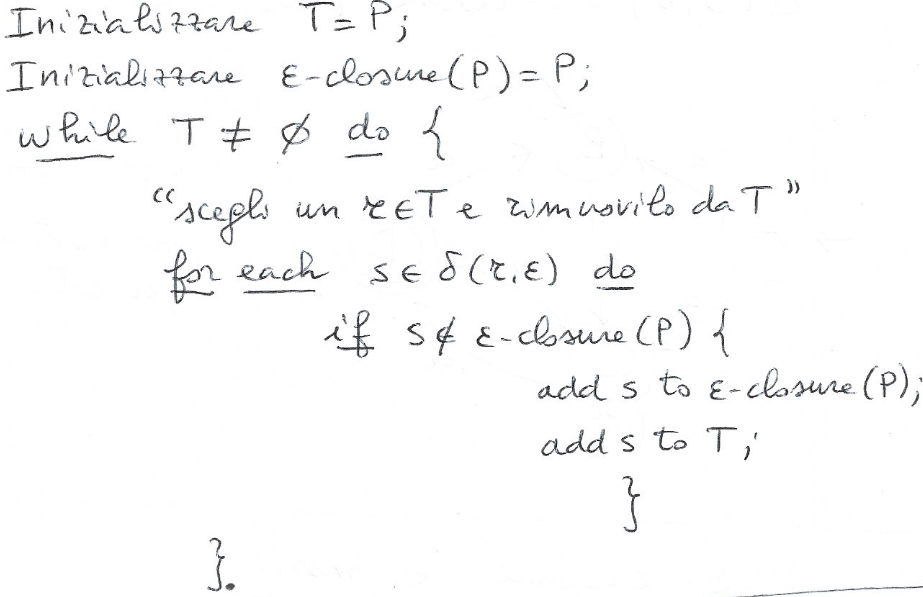 Inizializzare T=P;
Inizializzare ε-closure(P)=P;
while T ≠ ∅ do {
"scegli un r∈T e rimuovilo da T"
for each s∈ δ(r,ε) do
if s∉ ε-closure(P) {
add s to ε-closure(P);
add s to T;
}
}.